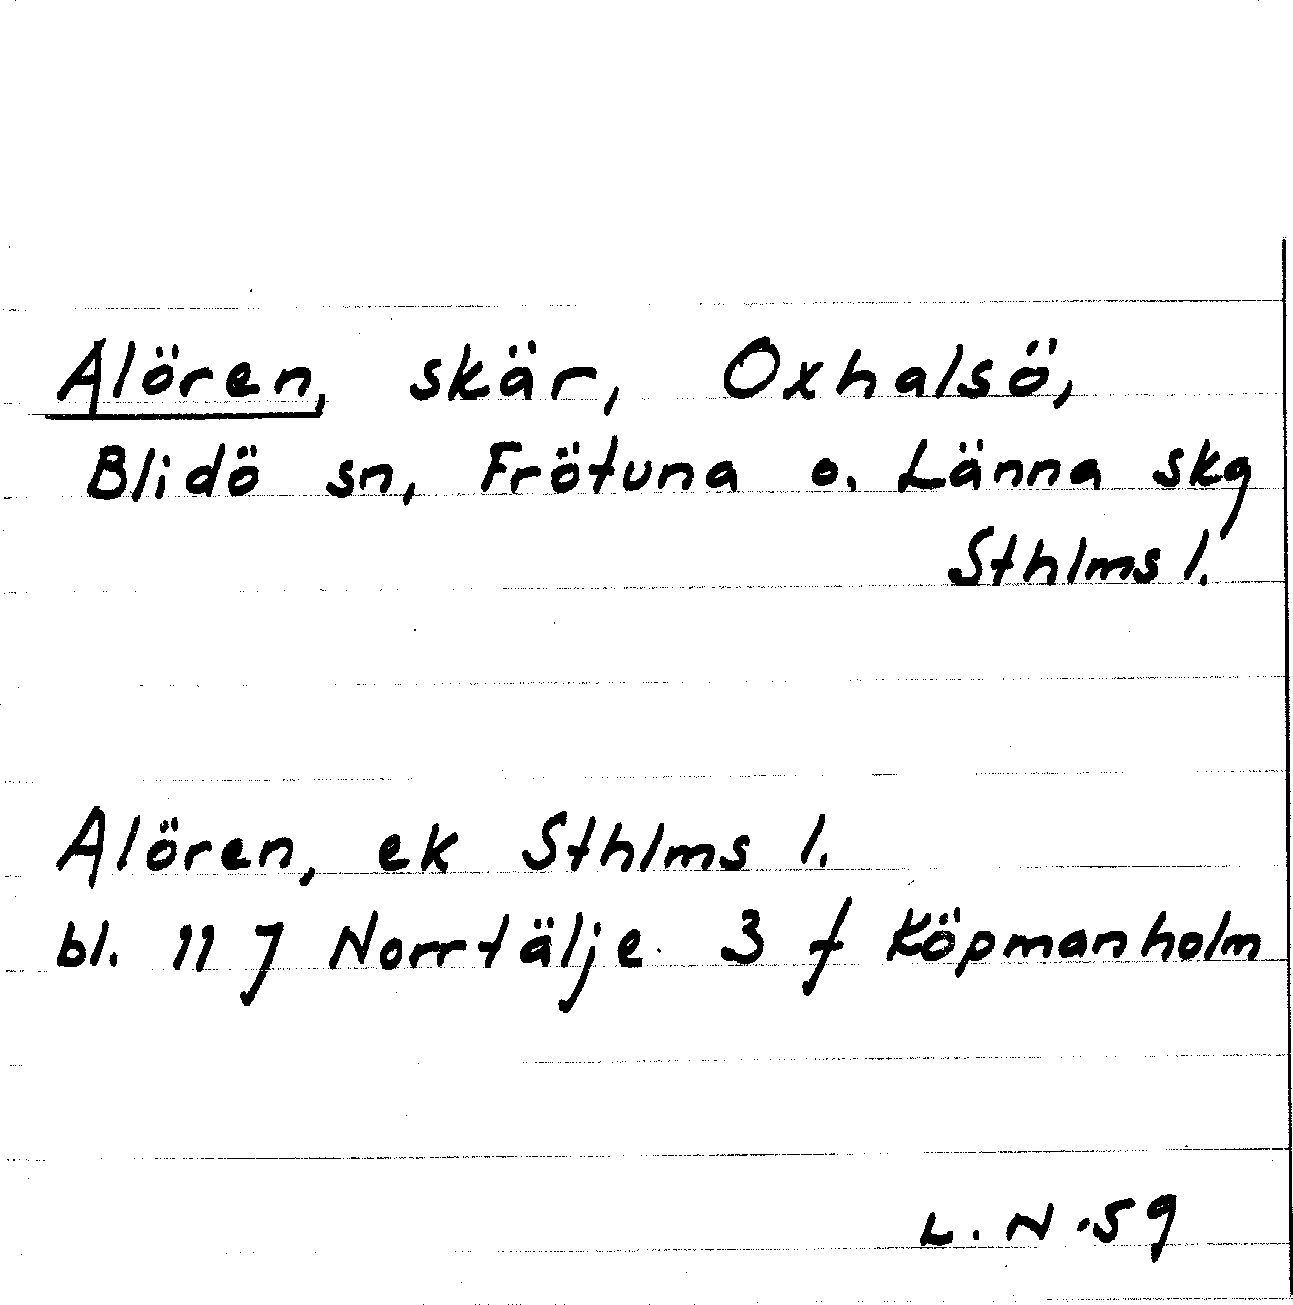 Alören, skär, Oxhalsö,
Blidö sn, Frötuna o. Länna skg
Sthlms l.
Alören, ek Sthlms l.
bl. 11 J Norrtälje 3 f Köpmanholm
L. N. 59